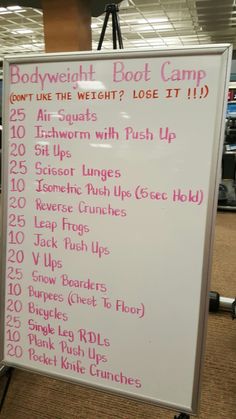 Bodyweight Boot Camp
(DON'T LIKE THE WEIGHT? LOSE IT !!!)
25 Air Squats
10 Inchworm with Push Up
20 Sit Ups
25 Scissor Lunges
10 Isometric Push Ups (5 sec Hold)
20 Reverse Crunches
25 Leap Frogs
10 Jack Push Ups
20 V Ups
25 Snow Boarders
10 Burpees (Chest To Floor)
20 Bicycles
25 Single Leg RDLs
10 Plank Push Ups
20 Pocket Knife Crunches